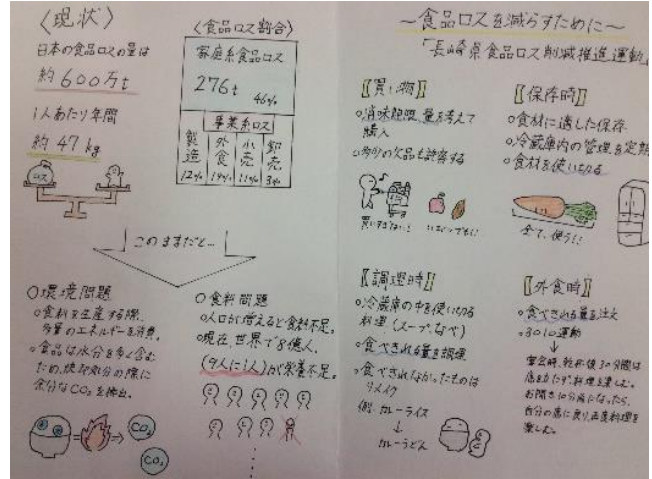 〈現状〉
日本の食品ロスの量は
約600万t
1人あたり年間
約47kg
ロス
〈食品ロス割合〉
家庭系食品ロス
276t
46%
事業系ロス
製造 外食 小売 卸売
12% 19% 11% 3%
このままだと…
○環境問題
○食料を生産する際、
多量のエネルギーを消費。
○食品は水分を多く含む
ため、焼却処分の際に
余分なCO₂を排出。
CO₂
CO₂
○食料問題
○人口が増えると食料不足。
○現在、世界で8億人、
(9人に1人)が栄養不足。
～食品ロスを減らすために～
「長崎県食品ロス削減推進運動」
【買い物】
○消味期限、量を考えて
購入
○多少の欠品も許容する
買いすぎない!
【保存時】
○食材に適した保存
○冷蔵庫内の管理を定期
○食材を使い切る
全て、使う!!
【調理時】
○冷蔵庫の中を使い切る
料理(スープ、なべ)
○食べきれる量を調理
○食べきれなかったものは
リメイク
例. カレーライス
↓
カレーうどん
【外食時】
○食べきれる量を注文
○3010運動
↓
宴会時、乾杯後30分間は
席を立たず、料理を楽しむ。
お開き10分前になったら、
自分の席に戻り、再度料理を
楽しむ。